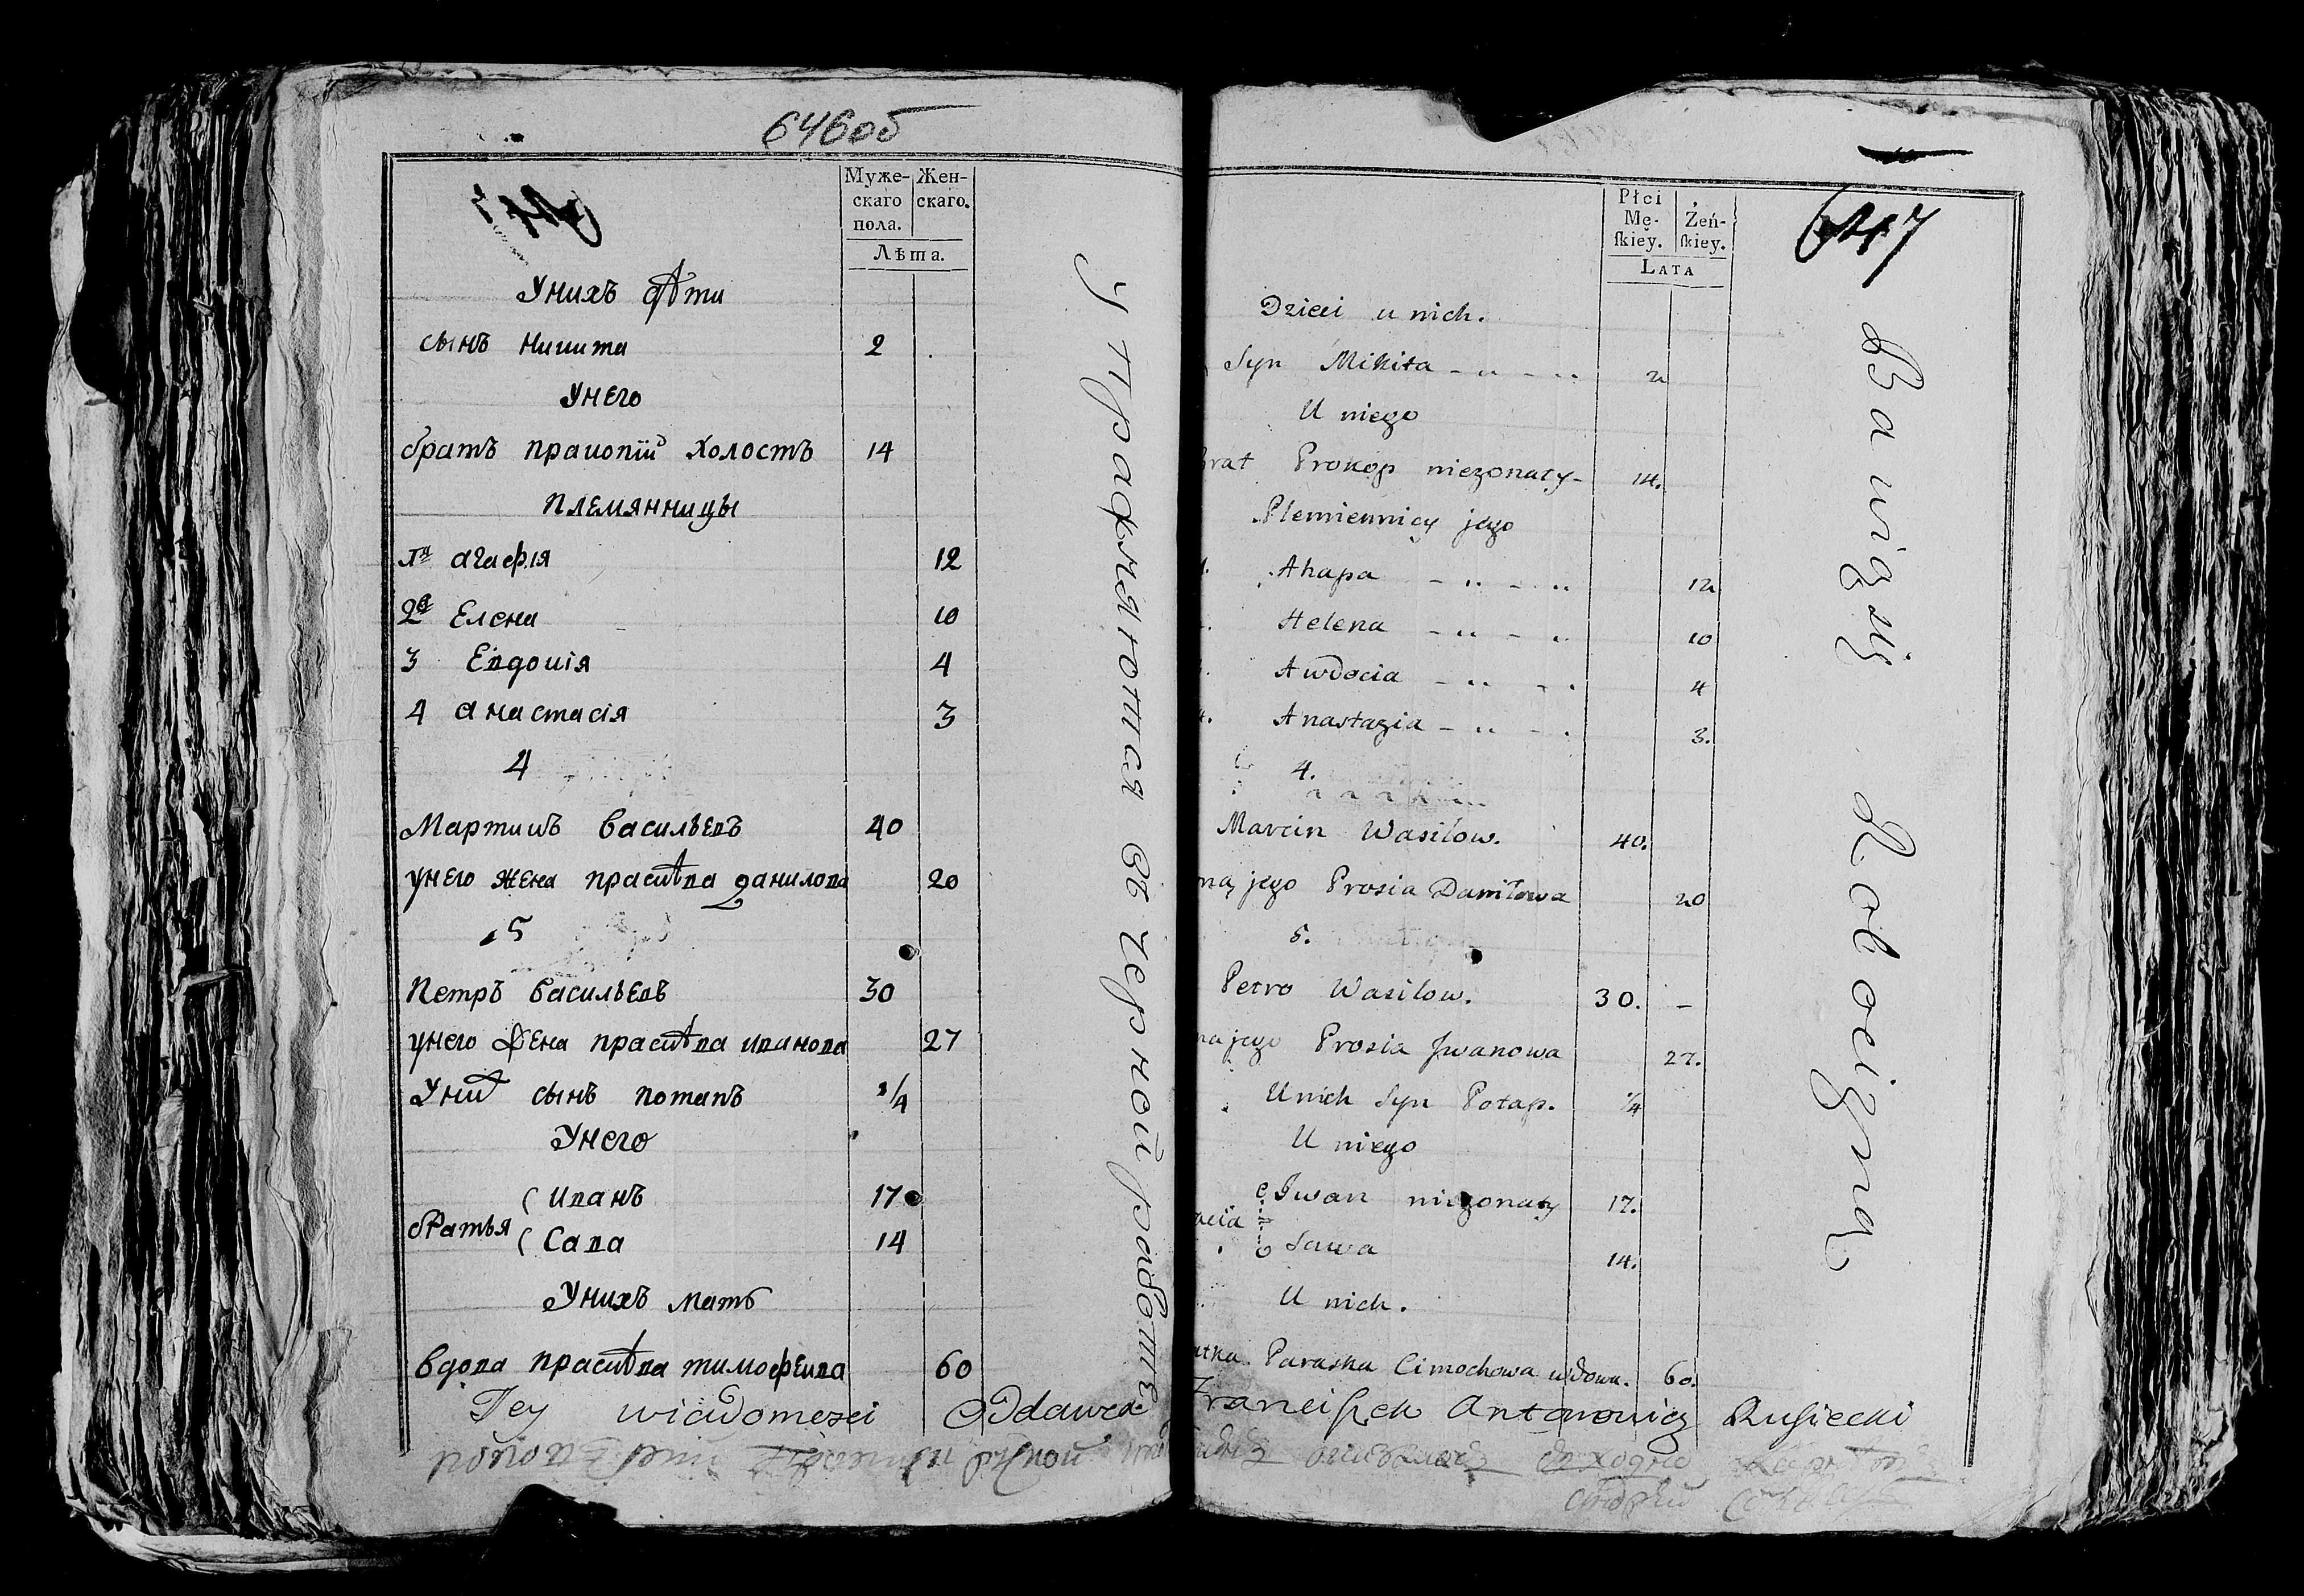 646об
Муже-
скаго
пола.
Жен-
скаго.
Лѣта.
Унихъ дѣти
сынъ Никита 2
Унего
братъ прокопій Холостъ 14
племянницы
1я агафія 12
2я Елена 10
3 Евдокія 4
4 анастасія 3
4
Мартинъ васильевъ 40
унего жена прасковѣва данилова 20
5
Петръ васильевъ 30
унего жена прасковѣва иванова 27
Уних сынъ потапъ 1/4
Унего
братья
( Иванъ 17
( Сава 14
Унихъ мать
вдова прасковѣва тимофеива 60
Упражняются въ черной работе
647
Płci
Mę-
ſkiey.
Żeń-
ſkiey.
LATA
Dzieci u nich.
Syn Mikita 2
U niego
Brat Prokop niezonaty 14.
Plemiennicy jego
Ahapa 12
Helena 10
Awdocia 4
4. Anastazia 3.
4.
Marcin Wasilow. 40.
na jego Prosia Daniłowa 20
5.
Petro Wasilow. 30. –
na jego Prosia Jwanowa 27.
U nich Syn Potap. 1/4
U niego
acia
Jwan niezonaty 17.
Sawa 14.
U nich.
atka Paraska Cimochowa wdowa. 60.
Bawią się Robocizną
Tey wiadomosci Oddawca Franciſzek Antonowicz Ruſiecki